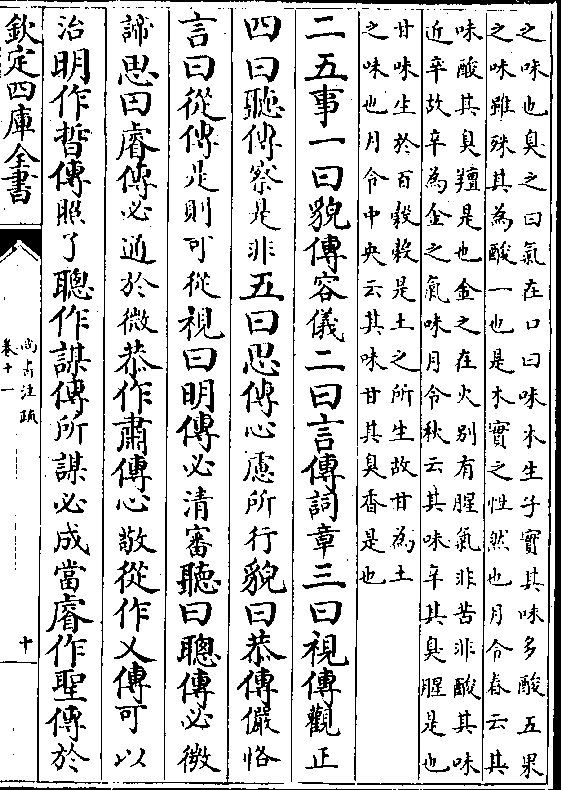 之味也臭之曰氣在口曰味木生子實其味多酸五果
之味雖殊其為酸一也是木實之性然也月令春云其
味酸其臭羶是也金之在火別有腥氣非苦非酸其味
近辛故辛為金之氣味月令秋云其味辛其臭腥是也
甘味生於百穀穀是土之所生故甘為土
之味也月令中央云其味甘其臭香是也
二五事一曰貌傳容儀二曰言傳詞章三曰視傳觀正
四曰聽傳察是非五曰思傳心慮所行貌曰恭傳儼恪
言曰從傳是則可從視曰明傳必清審聽曰聰傳必微
諦思曰睿傳必通於微恭作肅傳心敬從作乂傳可以
治明作晢傳照了聰作謀傳所謀必成當睿作聖傳於
欽定四庫全書
尚書注疏
卷十一
十